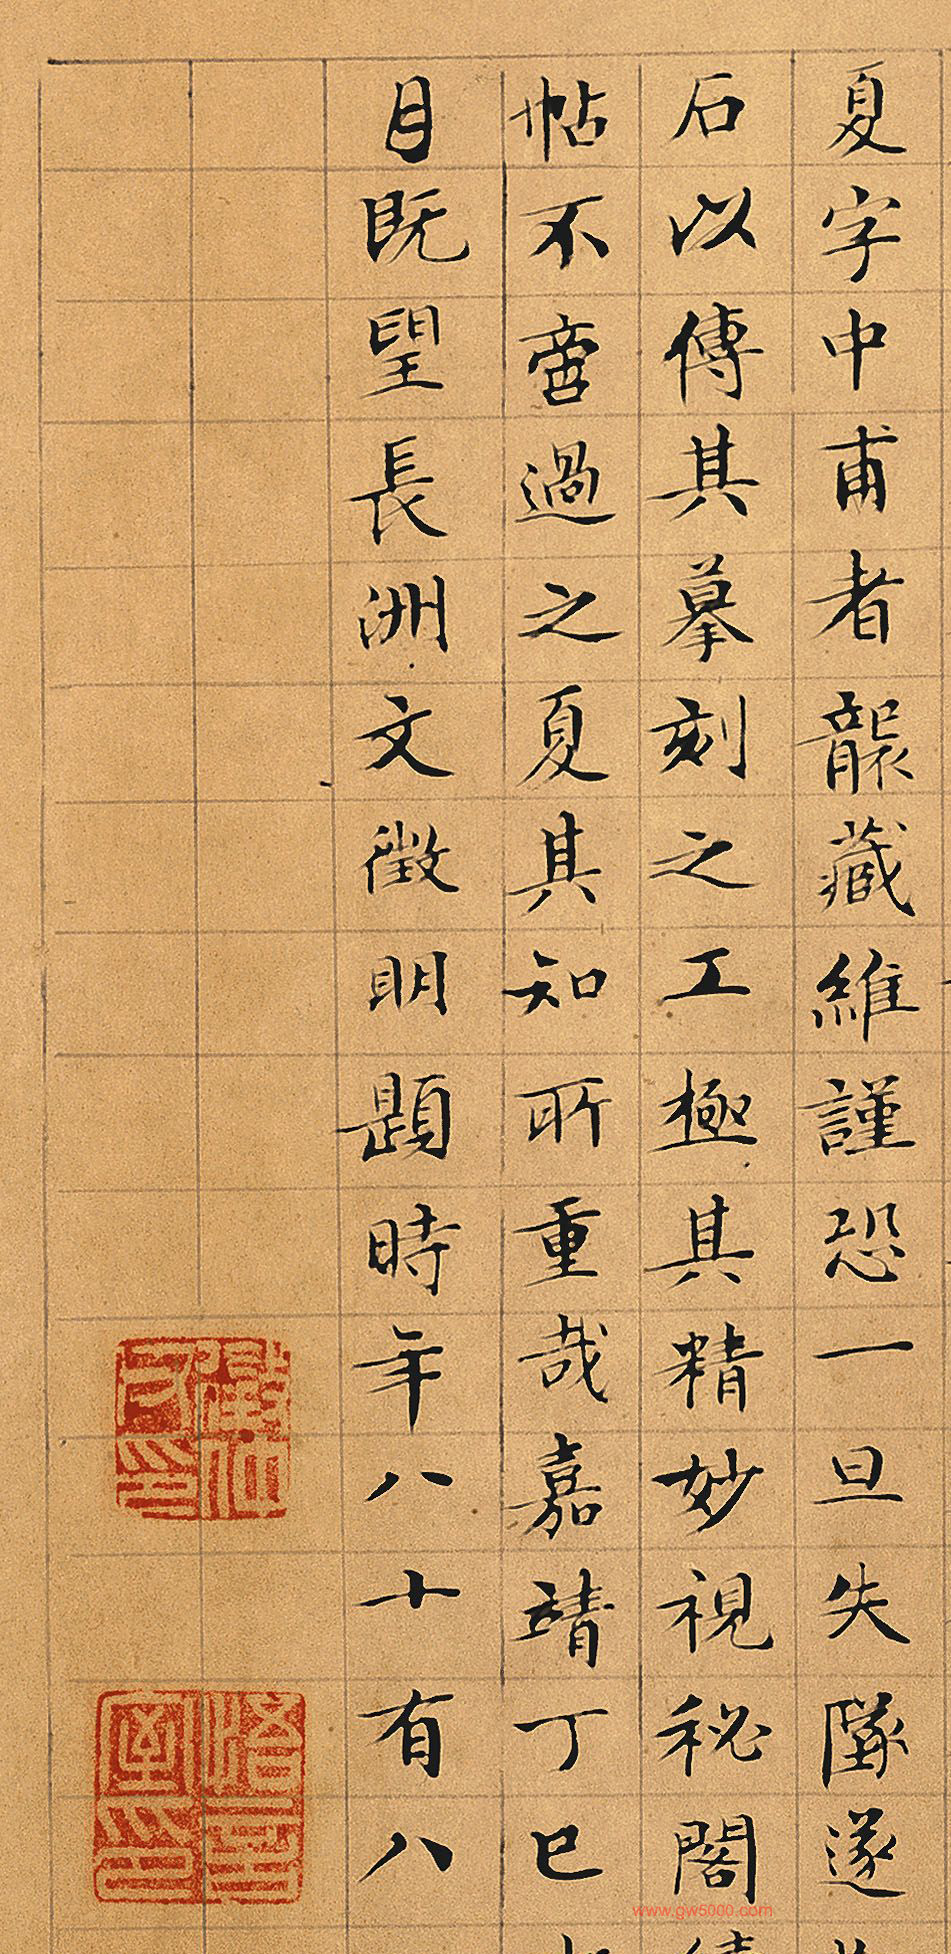 夏字中甫者襲藏維謹恐一旦失墜遂
石以傳其摹刻之工極其精妙視秘閣
帖不啻過之夏其知所重哉嘉靖丁巳
目既望長洲文徵明題時年八十有八
徵仲父印
悟言室印
www.gw5000.com